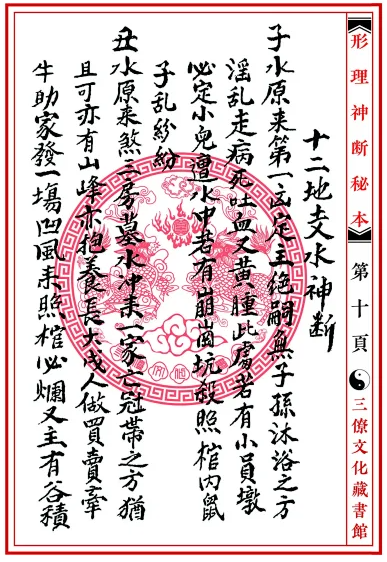 形理神断秘本
第十頁
三僚文化藏書館
十二地支水神断
子水原来第一凶定主绝嗣無子孫沐浴之方
淫乱走病死吐血又黄腫此處若有小員墩
必定小兒遭水冲若有崩崗坑殺照棺内鼠
子乱紛紛
丑水原来煞三房墓水冲来一家亡冠帶之方猶
且可亦有山峰亦抱养長大成人做買賣牽
牛助家發一塲凹風来照棺必爛又主有谷積